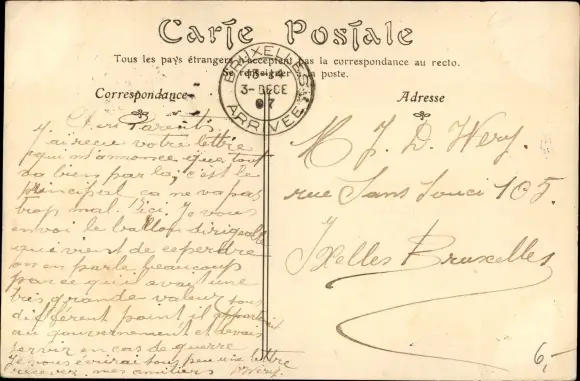 Carte Postale
Tous les pays étrangers n'acceptent pas la correspondance au recto.
Se renseigner à la poste.
BRUXELLES
13-14
3-DECE
07
ARRIVEE
Correspondance
Adresse
Chers Parents
ai recu votre lettre
qui m'annonce que tout
va bien par la, c'est le
principal ca ne va pas
trop mal. Ici. Je vous
envoi le ballon dirigeable
qui vient de ce perdre
on en parle beaucoup
parce qu'il avait une
très grande valeur sous
différent point il appartient
au gouvernement et devais
servir en cas de guerre
Je vous écrirai sous peu une lettre
recever mes amitiers Wery.
M J. D. Wery.
rue Sans Souci 105.
Ixelles Bruxelles
6,-